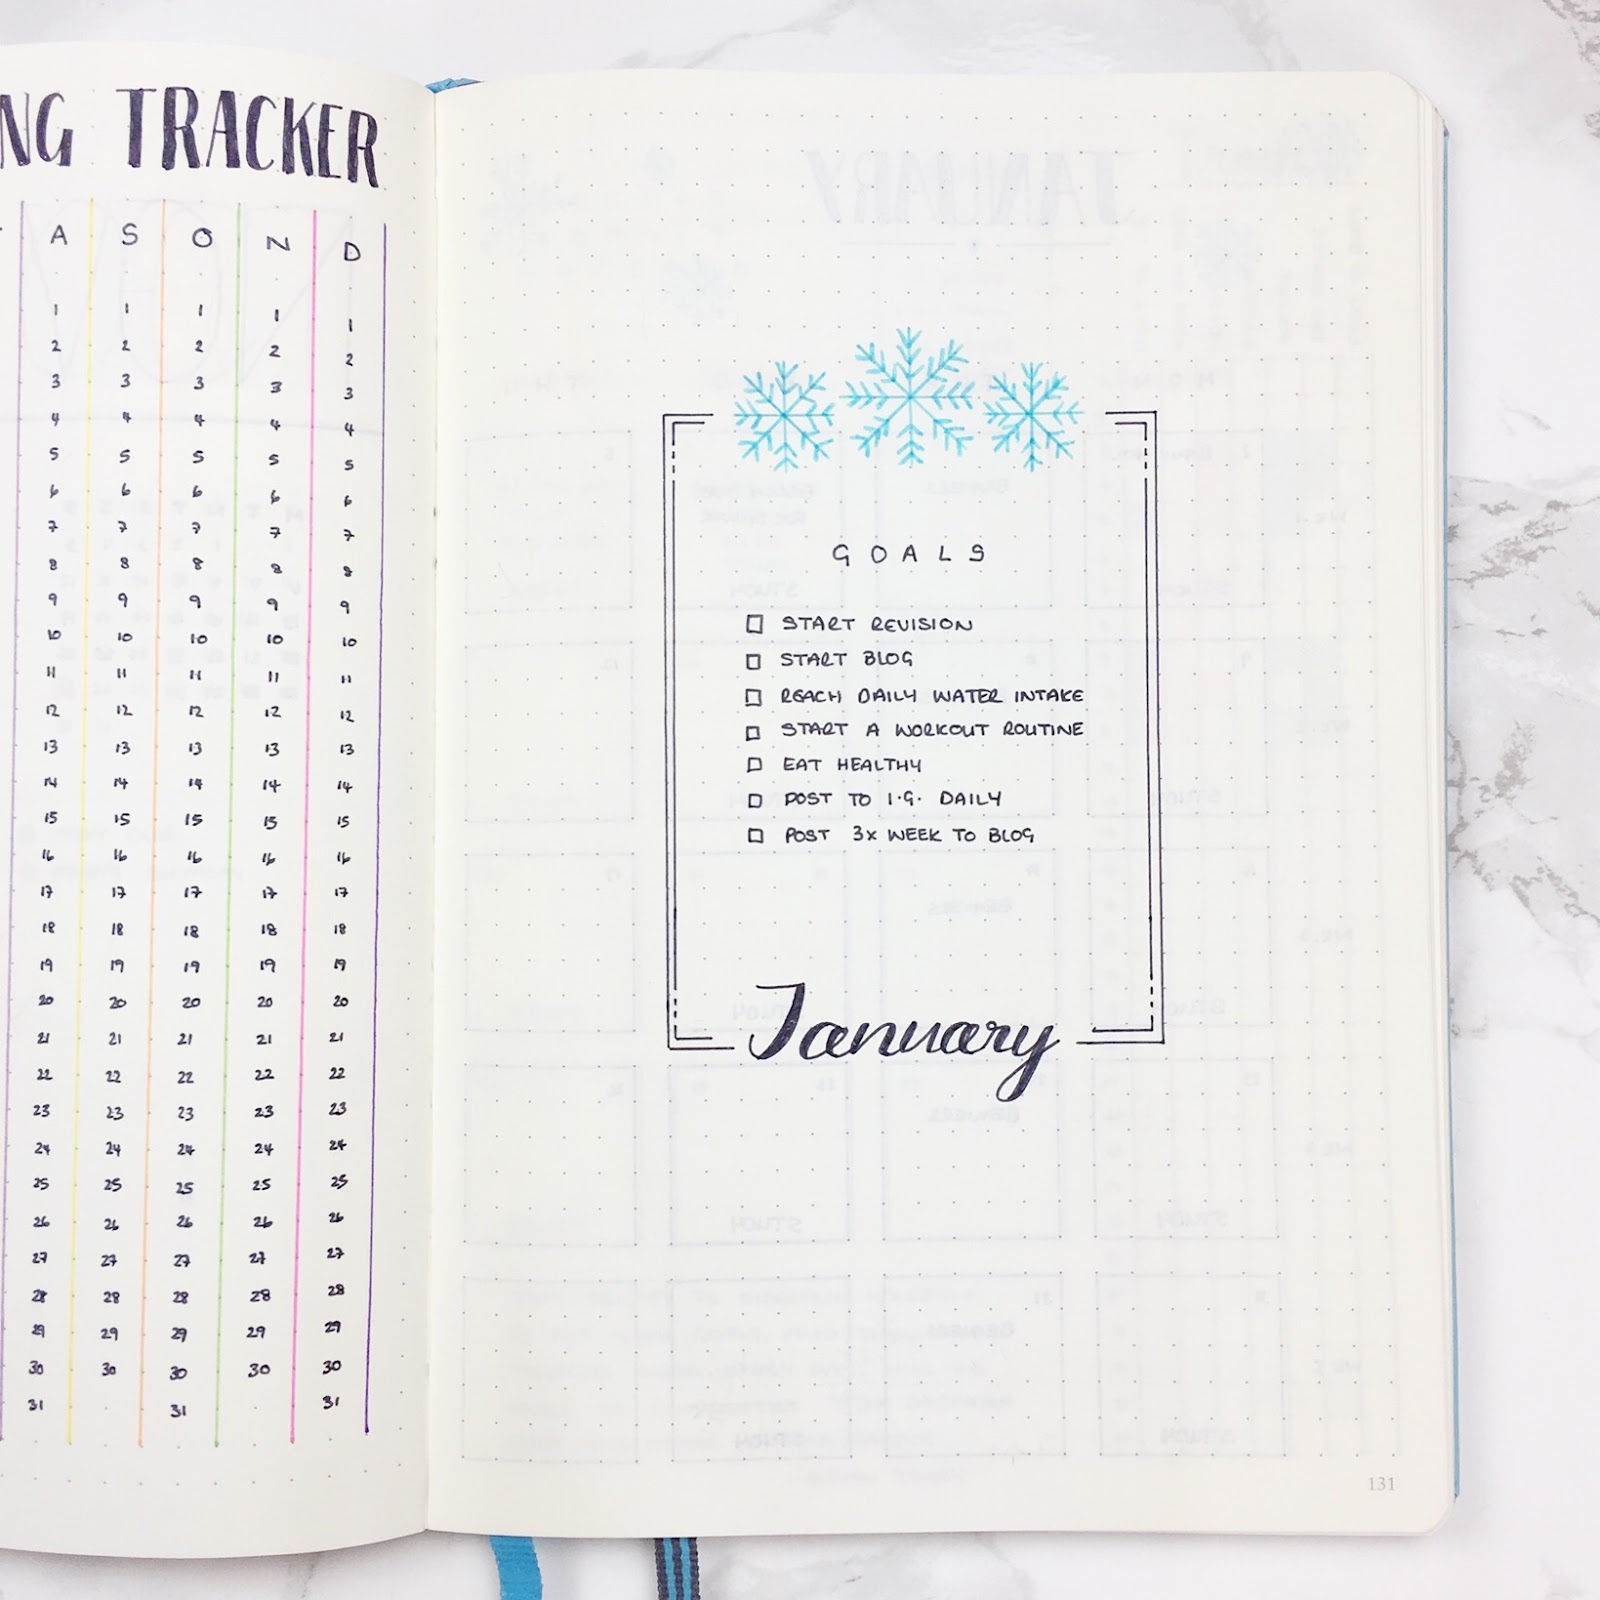 NG TRACKER
A S O N D
1 1 1 1 1
2 2 2 2 2
3 3 3 3 3
4 4 4 4 4
5 5 5 5 5
6 6 6 6 6
7 7 7 7 7
8 8 8 8 8
9 9 9 9 9
10 10 10 10 10
11 11 11 11 11
12 12 12 12 12
13 13 13 13 13
14 14 14 14 14
15 15 15 15 15
16 16 16 16 16
17 17 17 17 17
18 18 18 18 18
19 19 19 19 19
20 20 20 20 20
21 21 21 21 21
22 22 22 22 22
23 23 23 23 23
24 24 24 24 24
25 25 25 25 25
26 26 26 26 26
27 27 27 27 27
28 28 28 28 28
29 29 29 29 29
30 30 30 30 30
31 31 31
GOALS
START REVISION
START BLOG
REACH DAILY WATER INTAKE
START A WORKOUT ROUTINE
EAT HEALTHY
POST TO I.G. DAILY
POST 3x WEEK TO BLOG
January
131